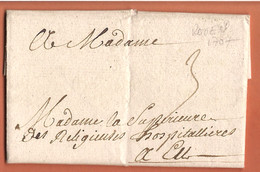 A Madame
3
Madame la Supérieure
des Religieuses hospitallieres
A Eu